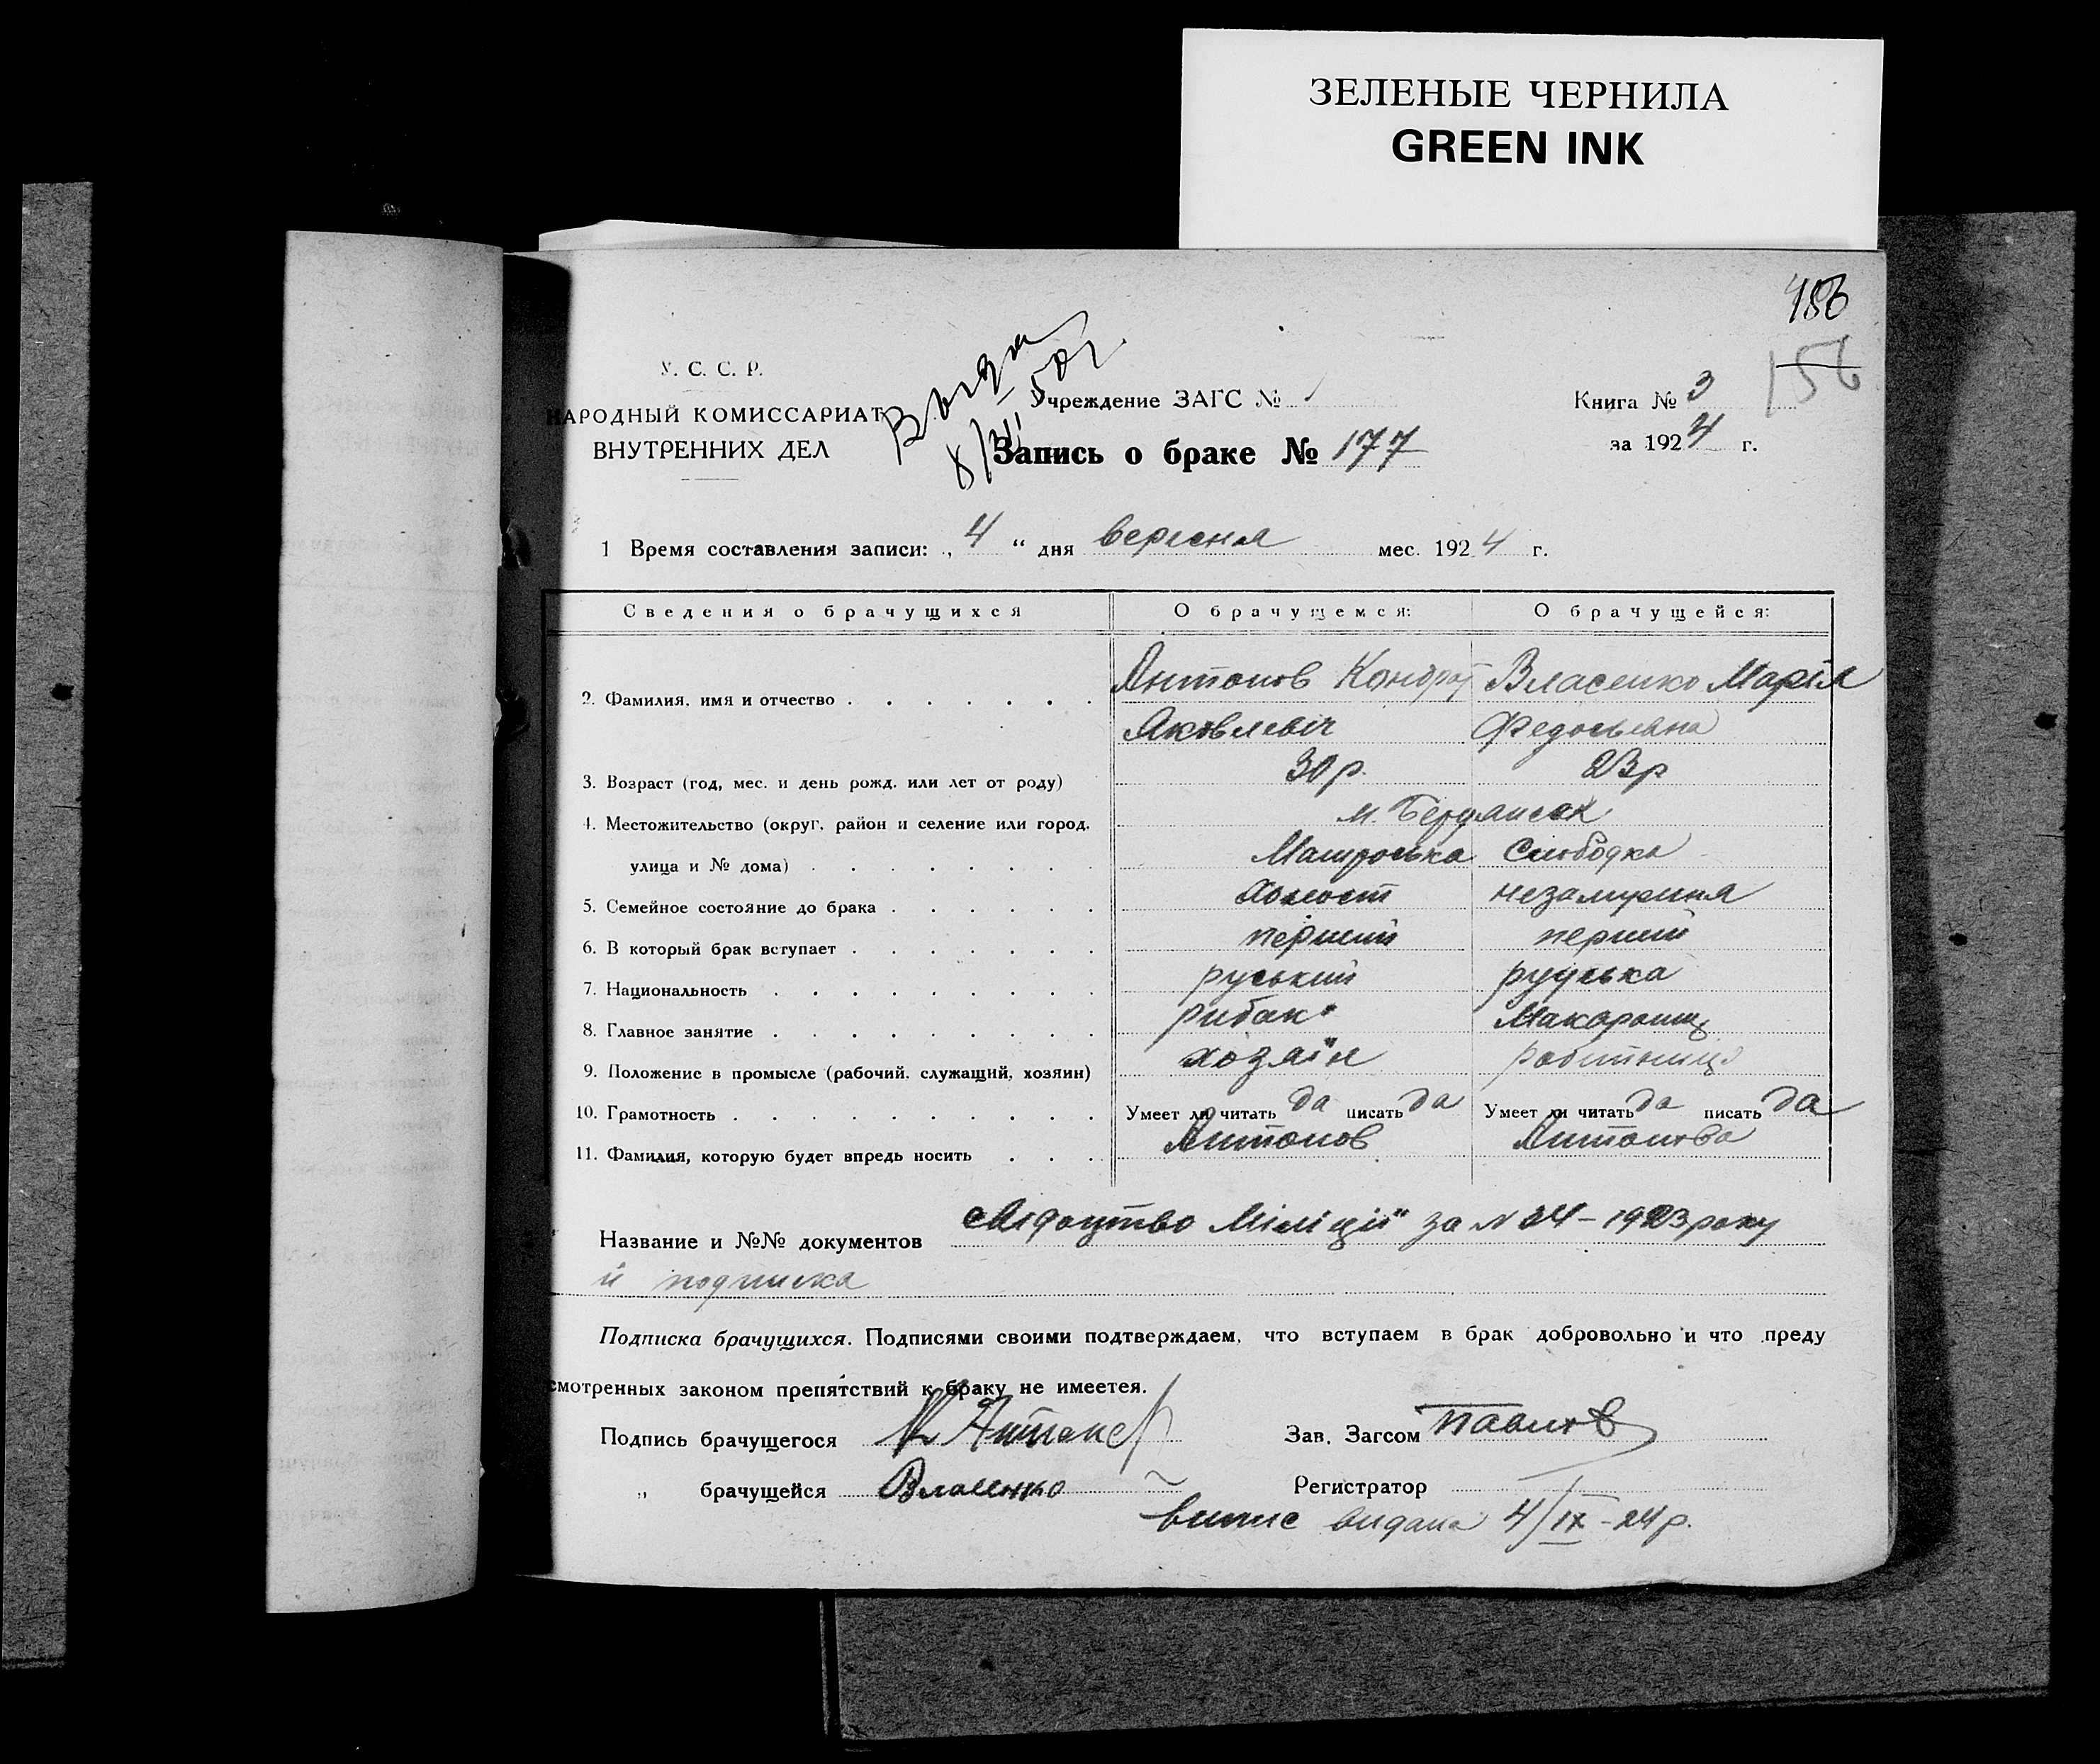 ЗЕЛЕНЫЕ ЧЕРНИЛА
GREEN INK
156
156
У. С. С. Р.
НАРОДНЫЙ КОМИССАРИАТ
ВНУТРЕННИХ ДЕЛ
Учреждение ЗАГС №
Запись о браке № 177
Книга № 3
за 1924 г.
1 Время составления записи: „ 4 “ дня вересня мес. 1924 г.
Сведения о брачущихся О брачущемся: О брачущейся:
2. Фамилия, имя и отчество . . . . . . . Антонов Кондрат Власенко Марія
Яковлевіч Федосьевна
3. Возраст (год, мес. и день рожд. или лет от роду) 30 р. 23 р
4. Местожительство (округ, район и селение или город, м. Бердянськ
улица и № дома) . . . . . . . . Матроська Слободка
5. Семейное состояние до брака . . . . . . холост незамужня
6. В который брак вступает . . . . . . . перший перший
7. Национальность . . . . . . . . . руський руська
8. Главное занятие . . . . . . . . . рибак
9. Положение в промысле (рабочий, служащий, хозяин) хозяїн робітниця
10. Грамотность . . . . . . . . . . Умеет ли читать да писать да Умеет ли читать да писать да
11. Фамилия, которую будет впредь носить . . . Антонов Антонова
Название и №№ документов свідоцтво Міліції за N 24 – 1923 року
й подписка
Подписка брачущихся. Подписями своими подтверждаем, что вступаем в брак добровольно и что преду
смотренных законом препятствий к браку не имеетея.
Подпись брачущегося К Антонов Зав. Загсом Павлов
„ брачущейся Власенко Регистратор
випис видана 4/IX - 24 р.